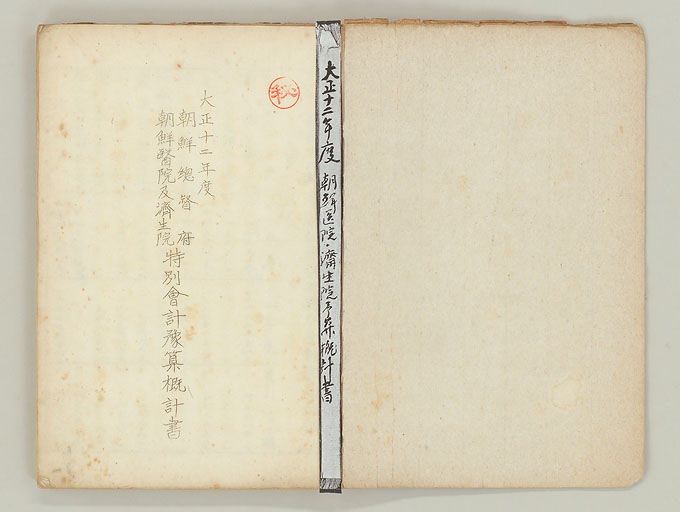 大正十二年度
朝鮮醫院・濟生院予算概計書
秘
大正十二年度
朝鮮總督府
朝鮮醫院及濟生院
特別會計豫算概計書